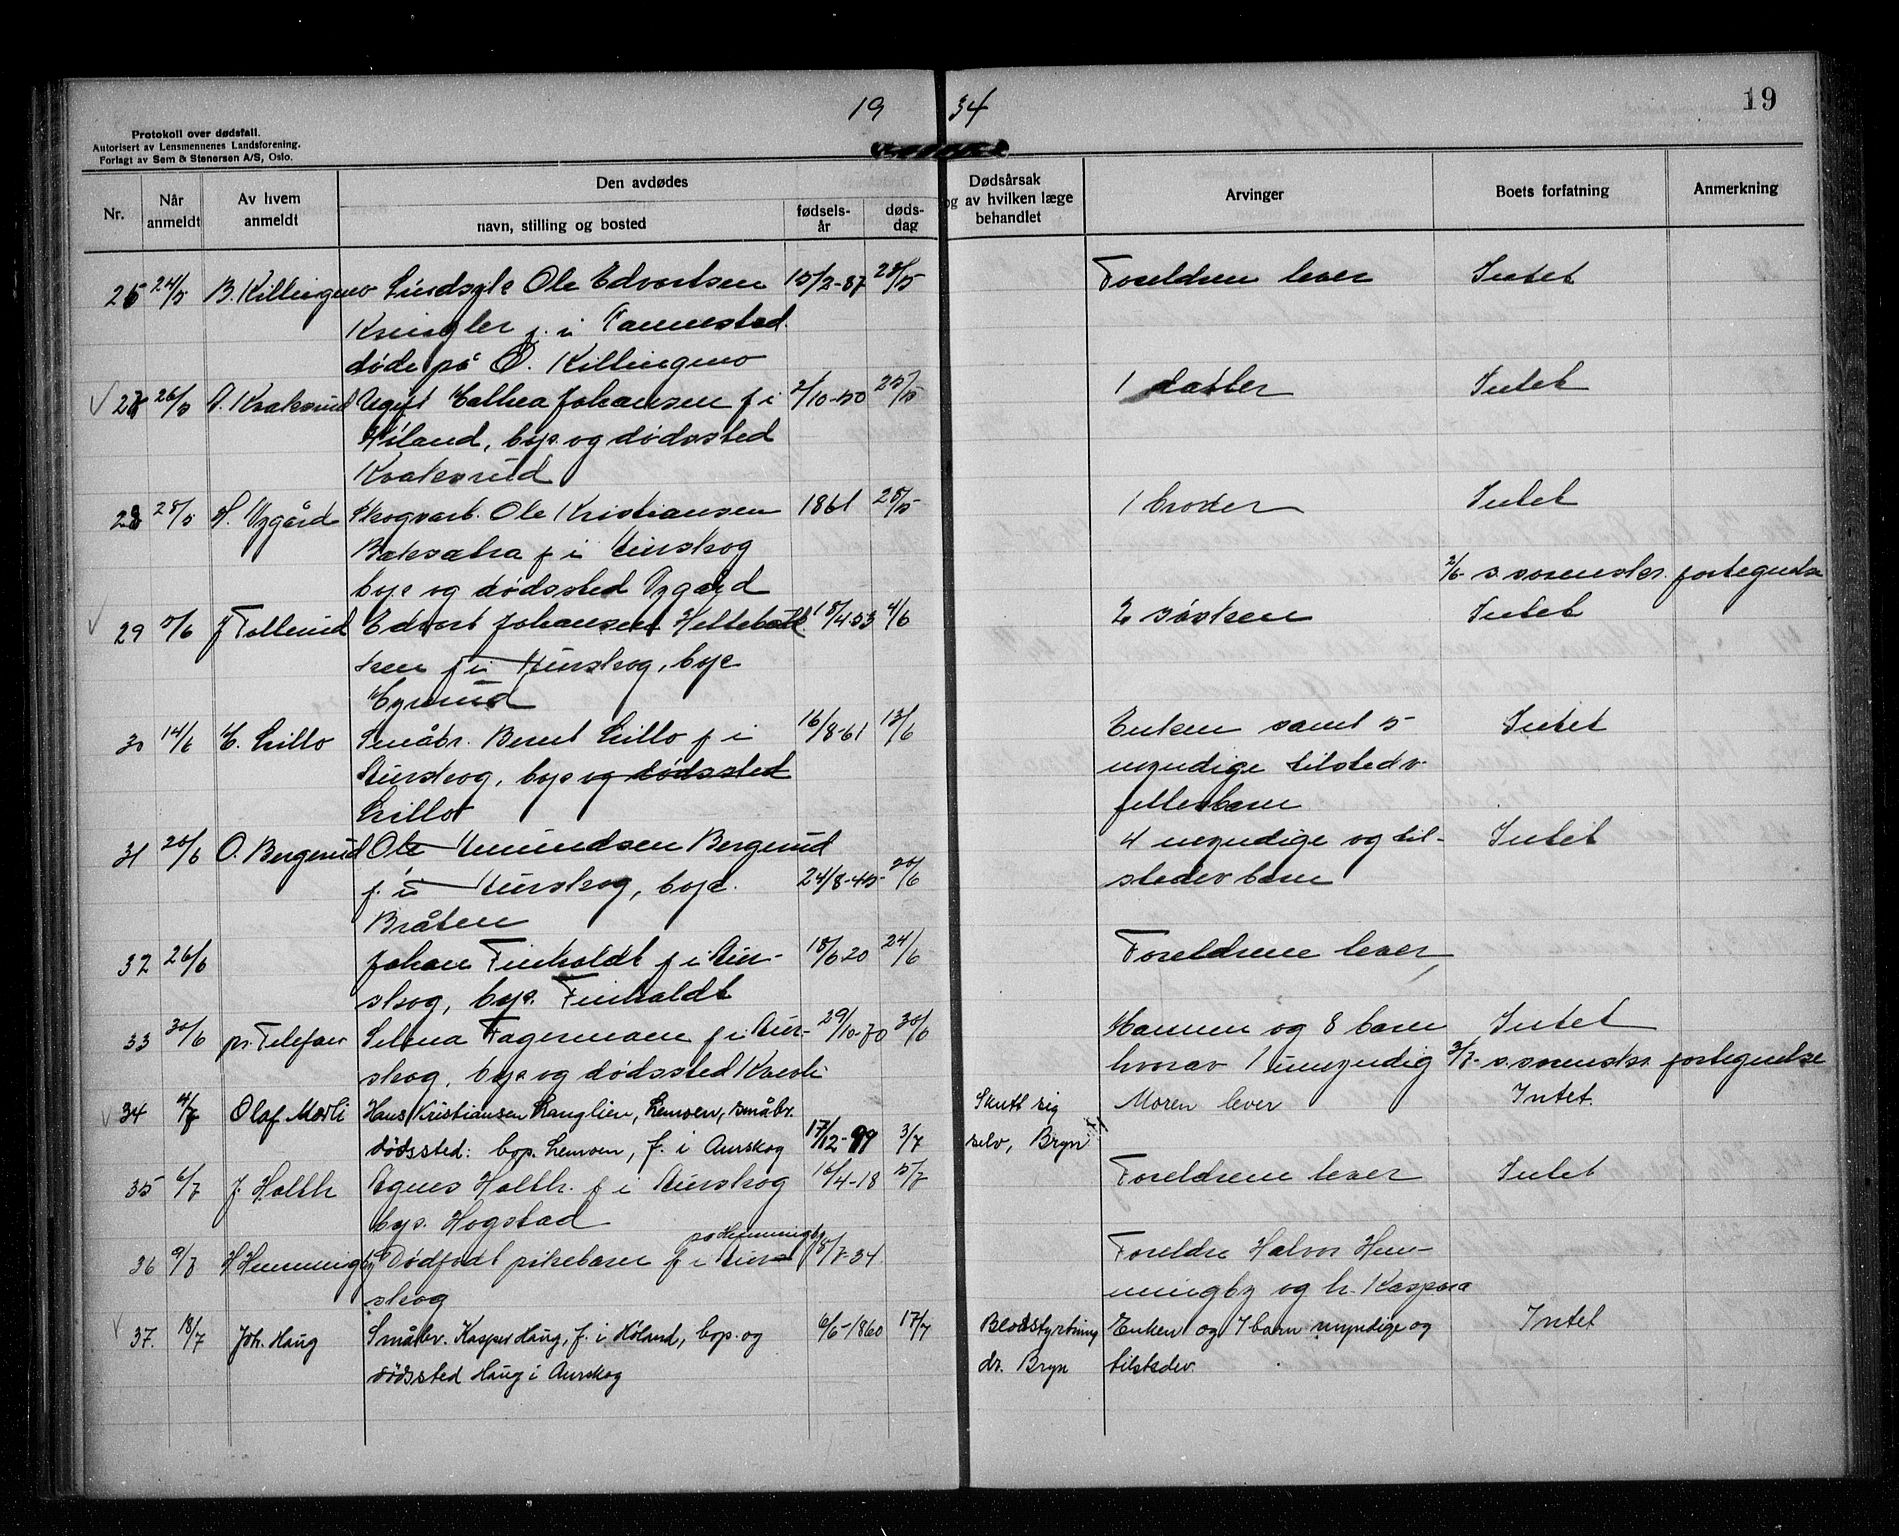 19 34
19
Protokoll over dødsfall.
Autorisert av Lensmennenes Landsforening.
Forlagt av Sem & Stenersen A/S, Oslo.
Nr.
Når anmeldt
Av hvem anmeldt
Den avdødes
navn, stilling og bosted
fødselsår
dødsdag
Dødsårsak
og av hvilken læge
behandlet
Arvinger
Boets forfatning
Anmerkning
B. Killingmo Sindsyk Ole Edvartsen 15/2-87 Foreldrene lever Intet
Kringler f. i
døde på Ø. Killingmo
26/5 Kraksrud Ugift Johansen f i 2/10-50 25/5 1 datter Intet
Høland, bop. og dødssted
Kraksrud
28/5 H. Nygård Skogvarb. Ole Kristiansen 1861 28/5 1 broder Intet
f i Aurskog
bop og dødssted Nygård 2/6 s. sorenskr. fortegnelse
29 5/6 J Tollerud Edvart Johansen 4/6 2 søsken Intet
f i Aurskog, bop
30 14/6 E. Lillo Småbr. Bernt Lillo f i 16/8-61 13/6 Enken samt 5 Intet
Aurskog, bop og dødssted myndige tilstedv.
Lillo fellesbarn
31 20/6 O. Bergerud Ole Amundsen Bergerud 4 myndige og til- Intet
f. i Aurskog, bop. 24/8-45 20/6 stedev barn
Bråten
32 26/6 Johan Finholdt f i Aur- 18/6 20 24/6 Foreldrene lever
skog, bop. Finholdt
33 30/6 pr. Telefon Selma Fagermoen f i Aur- 29/10-70 30/6 Mannen og 8 barn Intet
skog, bop og dødssted hvorav 1 umyndig 3/7- s. sorenskr. fortegnelse
34 4/7 Olaf Mærli Hans Kristiansen Langlien, Lemoen, småbr. Skutt sig Moren lever Intet.
dødssted: bop. Lemoen, f. i Aurskog 17/12-99 3/7 selv, Bryn
35 6/7 J. Holth Agnes Holth. f i Aurskog 16/4-18 5/7 Foreldrene lever Intet
bop. Hogstad
på Hemmingby
36 9/7 H Hemmingby Dødfødt pikebarn f i Aur- 8/7-34 Foreldre Halvor Hem-
skog mingby og h. Kaspara
37. 18/7 Joh. Haug Småbr. Kasper Haug, f. i Høland, bop. og 6/6-1860 17/7 Blodstyrtning Enken og 7 barn myndige og Intet
dødssted Haug i Aurskog dr. Bryn tilstedev.